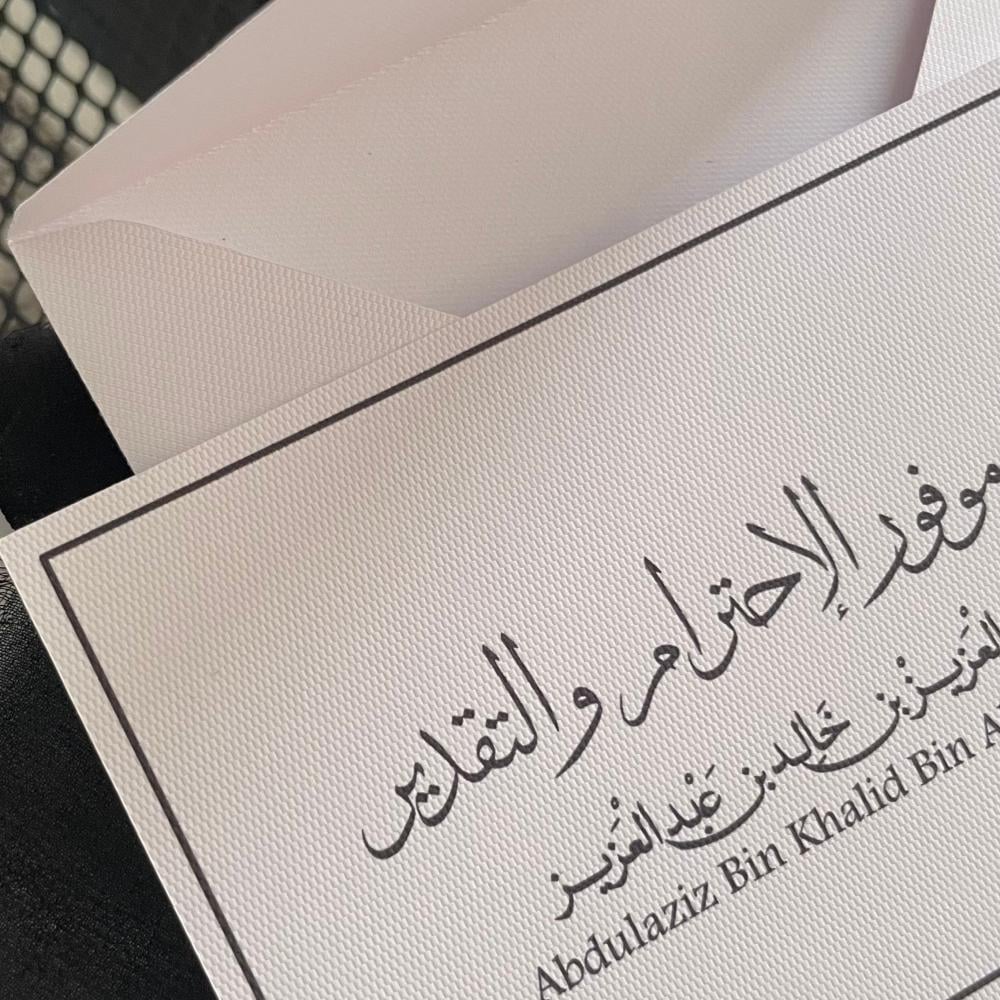 موفور الإحترام والتقدير
العَزيْز بن خَالِد بن عَبْدالعَزيْز
Abdulaziz Bin Khalid Bin